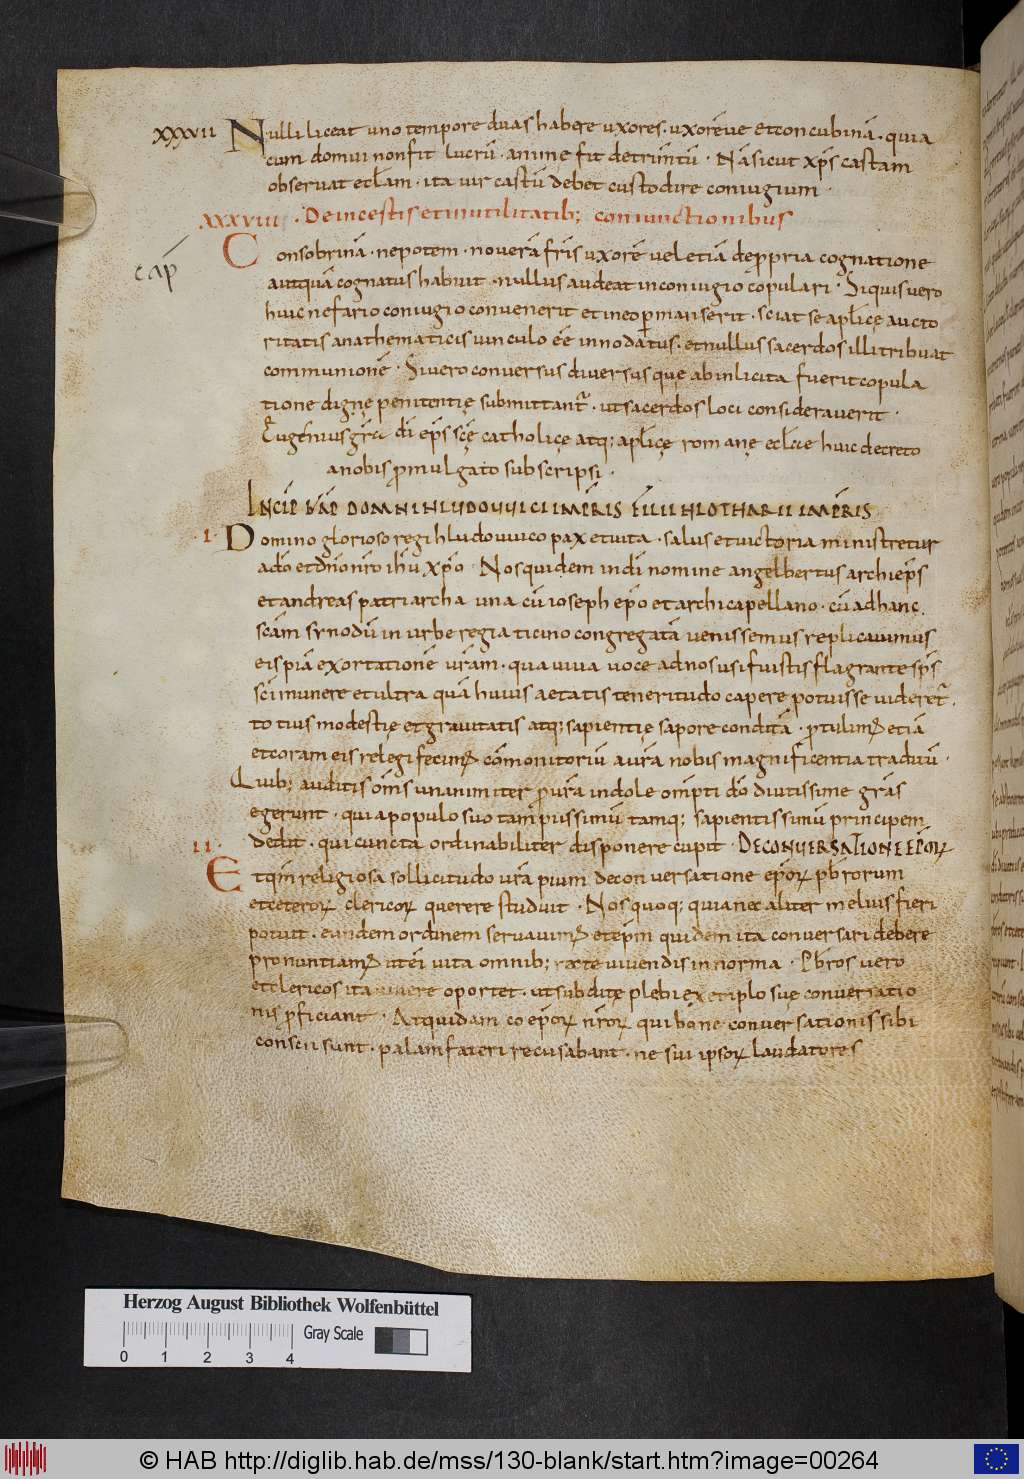 xxxvii Nulli liceat uno tempore duas habere uxores. uxorẽue et concubinã. quia
cum domui non fit lucrũ. anime fit detrimtũ. Nã sicut xp̃s castam
obseruat eccl̃am. ita uir castũ debet custodire coniugium.
xxxviii. De incestis et inutilitatib; coniunctionibus
Consobrinã. nepotem. nouerã fr̃is uxorẽ uel etiã de ꝓpria cognatione
cap̃
aut quã cognatus habuit. nullus audeat in coniugio copulari. Si quis uero
huic nefario coniugio conuenerit et in eo ꝑmanserit. sciat se apl̃icę aucto
ritatis anathematicis uinculo eẽ innodatus. et nullus sacerdos illi tribuat
communionẽ. Si uero conuersus diuersusque ab inlicita fuerit copula
tione digne penitentię submittant᷑. ut sacerdos loci considerauerit.
Eugẽnius gr̃a di ep̃s scę catholicę atq; apl̃icę romanę eccl̃ie huic decreto
a nobis ꝓmulgato subscripsi.
INCIP̃ CAP̃ DOMNI HLUDOVVICI IMP̃RIS FILII HLOTHARII IMP̃RIS
.I. Domino glorioso regi hludouuico pax et uita. salus et uictoria ministretur
a dõ et dn̄o nr̃o ihũ xp̃o. Nos quidem in di nomine angelbertus archiep̃s
et andreas patriarcha una cũ ioseph ep̃o et archicapellano. cũ ad hanc
scãm synodũ in urbe regia ticino congregatã uenissemus replicauimus
eis piã exortationẽ ur̃am. qua uiua uoce ad nos usi fuistis flagrante sp̃s
sc̃i munere et ultra quã huius aetatis teneritudo capere potuisse uideret᷑.
totius modestię et grauitatis atq; sapientię sapore conditã. ꝓtulim; etiã
et coram eis relegi fecim; cõmonitoriũ a ur̃a nobis magnificentia traditũ.
Quib; auditis om̃s unanimiter ꝓ ur̃a indole om̃pti dõ diutissime gr̃as
egerunt. qui a populo suo tam piissimũ tamq; sapientissimũ principem
dedit. qui cuncta ordinabiliter disponere cupit. DE CONUERSATIONE EP̃OR̃
II. Et qm̃ religiosa sollicitudo ur̃a pium de conuersatione ep̃oꝝ pb̃rorum
et ceteroꝝ clericoꝝ querere studuit. Nos quoq; quia nec aliter melius fieri
potuit. eundem ordinem seruauim; et ep̃m quidem ita conuersari debere
pronuntiam; ut ei uita omnib; recte uiuendi sit norma. Pb̃ros uero
et clericos ita uiuere oportet. ut subditę plebi exemplo suę conuersatio
nis ꝓficiant. At quidam coep̃oꝝ nr̃oꝝ qui bonę conuersationis sibi
conscii sunt. palam fateri recusabant. ne sui ipsoꝝ laudatores
Herzog August Bibliothek Wolfenbüttel
Gray Scale
0 1 2 3 4
© HAB http://diglib.hab.de/mss/130-blank/start.htm?image=00264